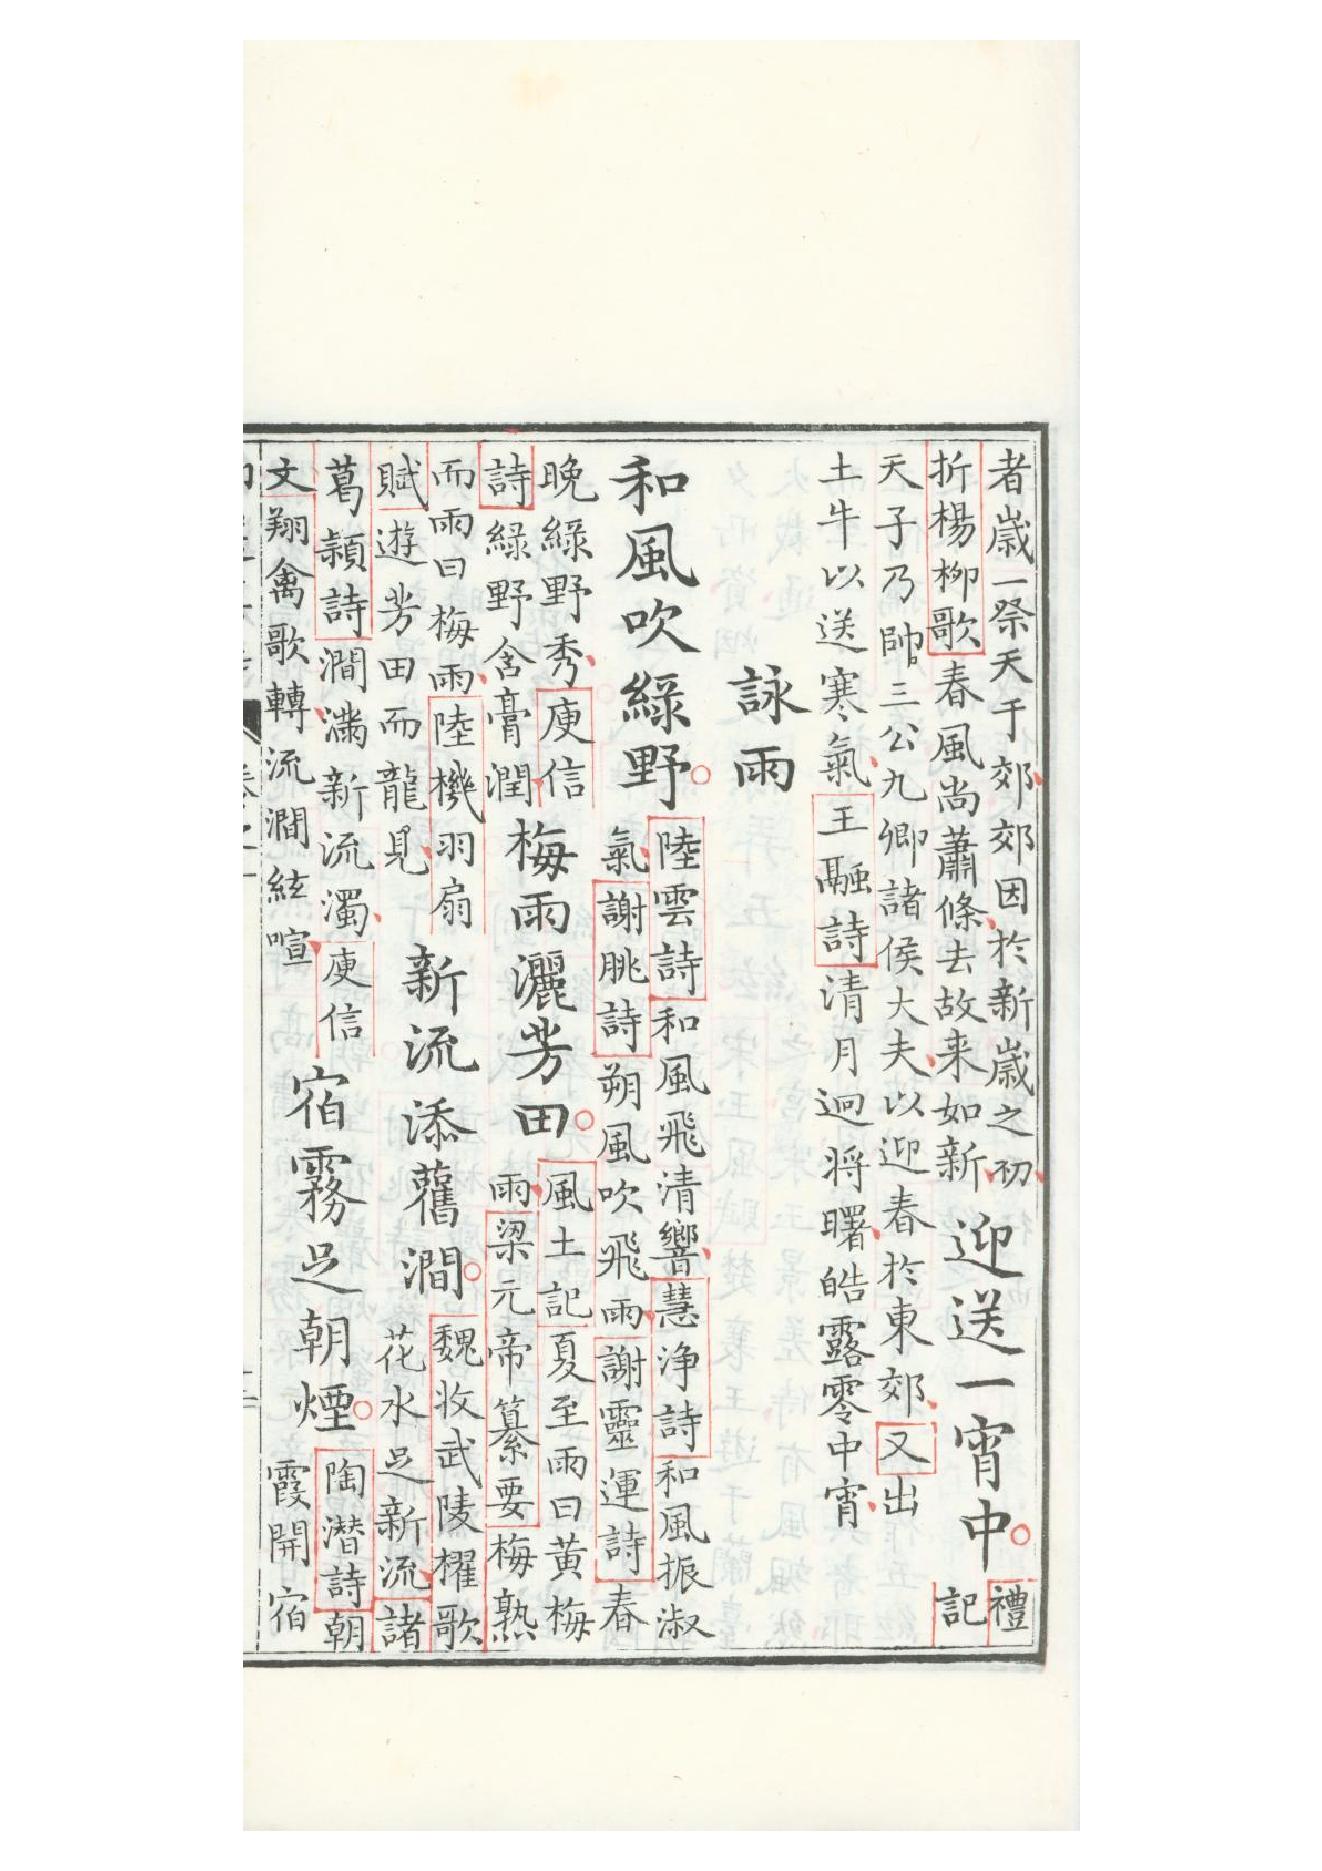 者歲一祭天于郊郊因於新歲之初
折楊柳歌春風尚蕭條去故来如新
迎送一宵中
禮
記
天子乃帥三公九卿諸侯大夫以迎春於東郊又出
土牛以送寒氣王融詩清月迥将曙皓露零中宵
詠雨
和風吹綠野
陸雲詩和風飛清響慧浄詩和風振淑
氣謝朓詩朔風吹飛雨謝靈運詩春
晚綠野秀庾信
詩綠野含膏潤
梅雨灑芳田
風土記夏至雨曰黄梅
雨梁元帝纂要梅熟
而雨曰梅雨陸機羽扇
賦遊芳田而龍見
新流添舊澗
魏收武陵櫂歌
花水足新流諸
葛頴詩澗滿新流濁庾信
文翔禽歌轉流澗絃喧
宿霧足朝煙
陶潜詩朝
霞開宿